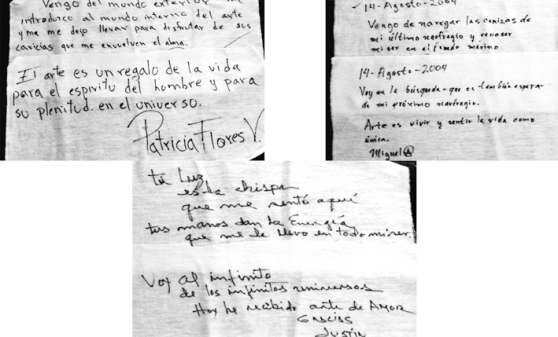 Vengo del mundo exterior me
introduzco al mundo interno del arte
y me me dejo llevar para disfrutar de sus
caricias que me envuelven el alma.
El arte es un regalo de la vida
para el espiritu del hombre y para
su plenitud. en el universo.
Patricia Flores V.
14-Agosto-2004
Vengo de navegar las cenizas de
mi último naufragio y renacer
mi ser en el fondo marino
14-Agosto-2004
Voy en la búsqueda-que es también espera-
de mi próximo naufragio.
Arte es vivir y sentir la vida como
única.
Miguel@
tu Luz
es la chispa
que me sentó aquí
tus manos dan la Energía
que me la llevo en todo mi ser.
Voy al infinito
de los infinitos
Hoy he recibido arte de Amor
Gracias